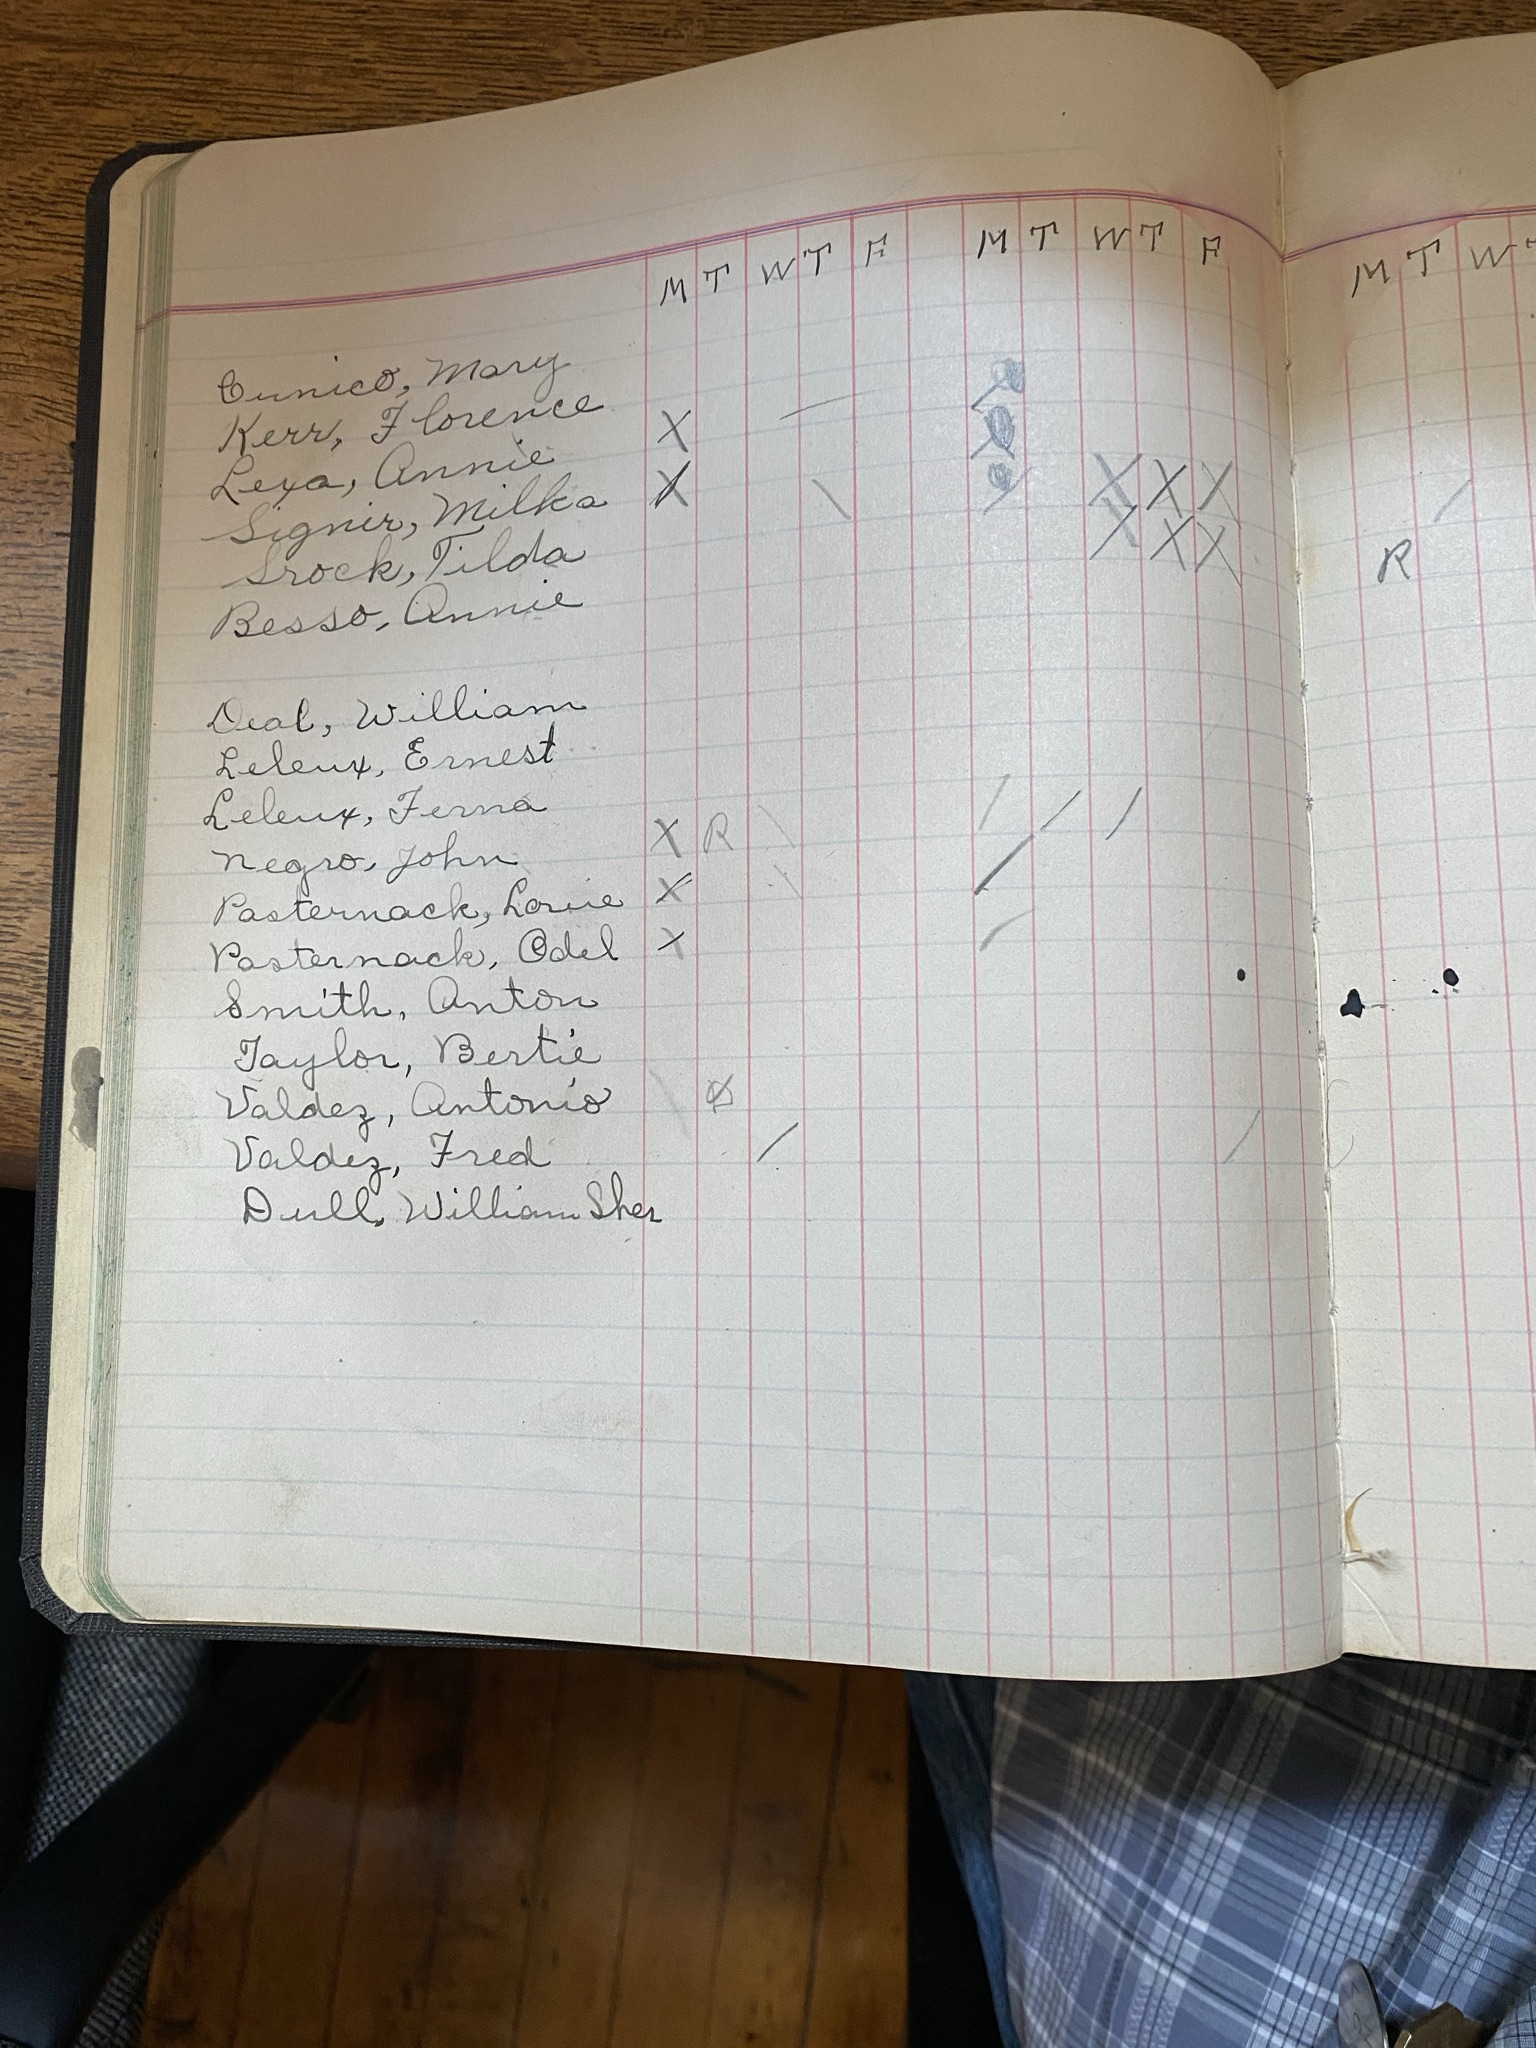 M T W T F M T W T F M T W T
Cunico, Mary
Kerr, Florence X
Lexa, Annie X X X X
Signir, Milka X X X
Srock, Tilda R
Besso, Annie
Deal, William
Leleux, Ernest
Leleux, Ferna
Negro, John X R
Pasternack, Louie X
Pasternack, Odel X
Smith, Anton
Taylor, Bertie
Valdez, Antonio
Valdez, Fred
Dull, William Sher